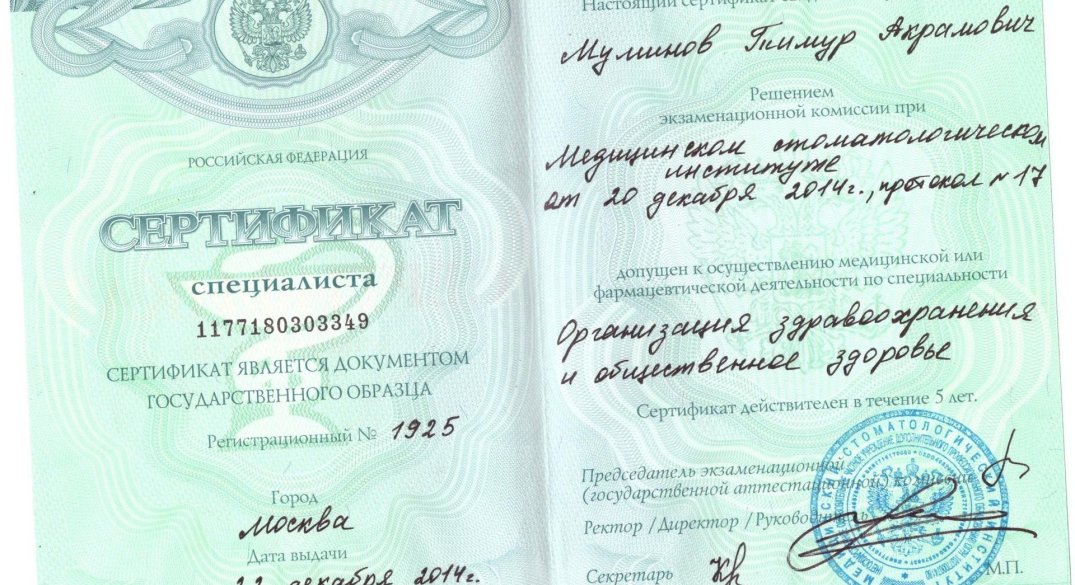 РОССИЙСКАЯ ФЕДЕРАЦИЯ
СЕРТИФИКАТ
специалиста
1177180303349
СЕРТИФИКАТ ЯВЛЯЕТСЯ ДОКУМЕНТОМ
ГОСУДАРСТВЕННОГО ОБРАЗЦА
Регистрационный № 1925
Город
Москва
Дата выдачи
22 декабря 2014г.
Настоящий сертификат
Муминов Тимур Акрамович
Решением
экзаменационной комиссии при
Медицинском стоматологическом
институте
от 20 декабря 2014г., протокол №17
допущен к осуществлению медицинской или
фармацевтической деятельности по специальности
Организация здравоохранения
и общественное здоровье
Сертификат действителен в течение 5 лет.
Председатель экзаменационной
(государственной аттестационной) комиссии
Ректор / Директор / Руководитель
Секретарь
М.П.